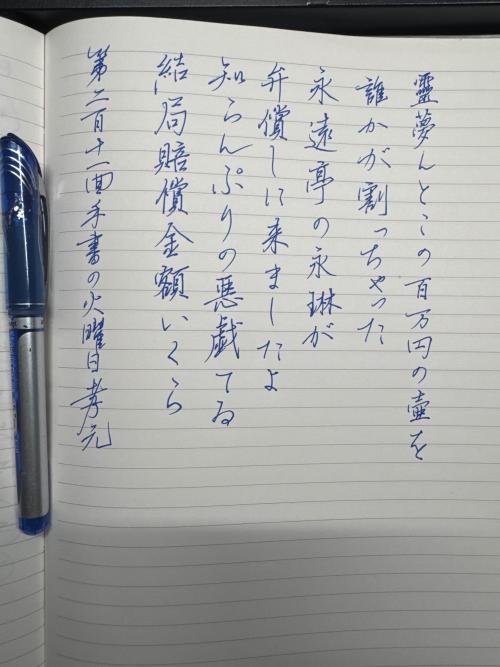 靈夢んとこの百万円の壺を
誰かが割っちゃった
永遠亭の永琳が
弁償しに来ましたよ
知らんぷりの悪戯てゐ
結局賠償金額いくら
第二百十一回手書の火曜日孝元